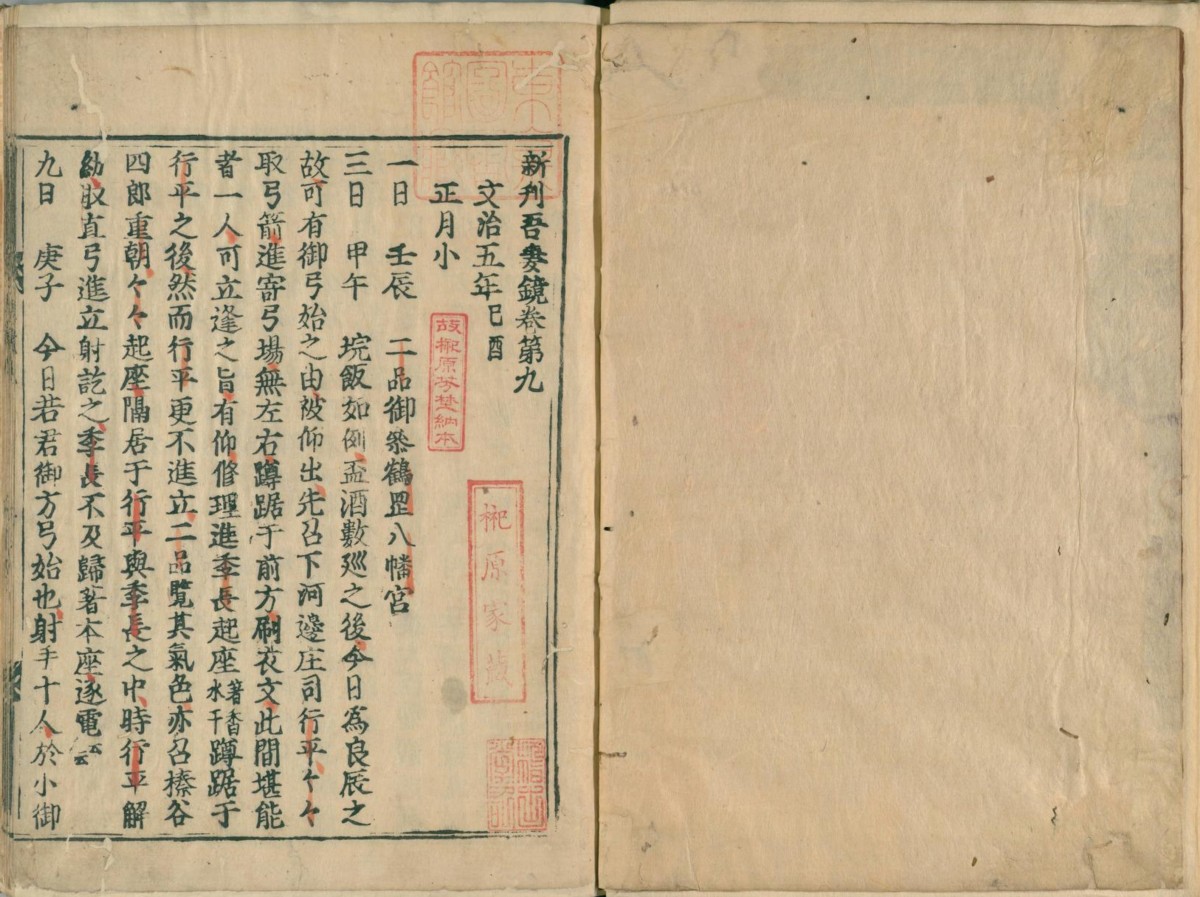 新刊吾妻鏡卷第九
文治五年己酉
正月小
一日 壬辰 二品御參鶴罡八幡宮
三日 甲午 垸飯如例盃酒數廵之後今日爲良辰之
故可有御弓始之由被仰出先召下河邊庄司行平々々
取弓箭進寄弓場無左右蹲踞于前方刷衣文此間堪能
者一人可立逢之旨有仰修理進季長起座著香水干蹲踞于
行平之後然而行平更不進立二品覽其氣色亦召榛谷
四郎重朝々々起座隔居于行平與季長之中時行平解
紐取直弓進立射訖之季長不及歸著本座逐電云云
九日 庚子 今日若君御方弓始也射手十人於小御
故榊原芳埜納本
榊原家藏